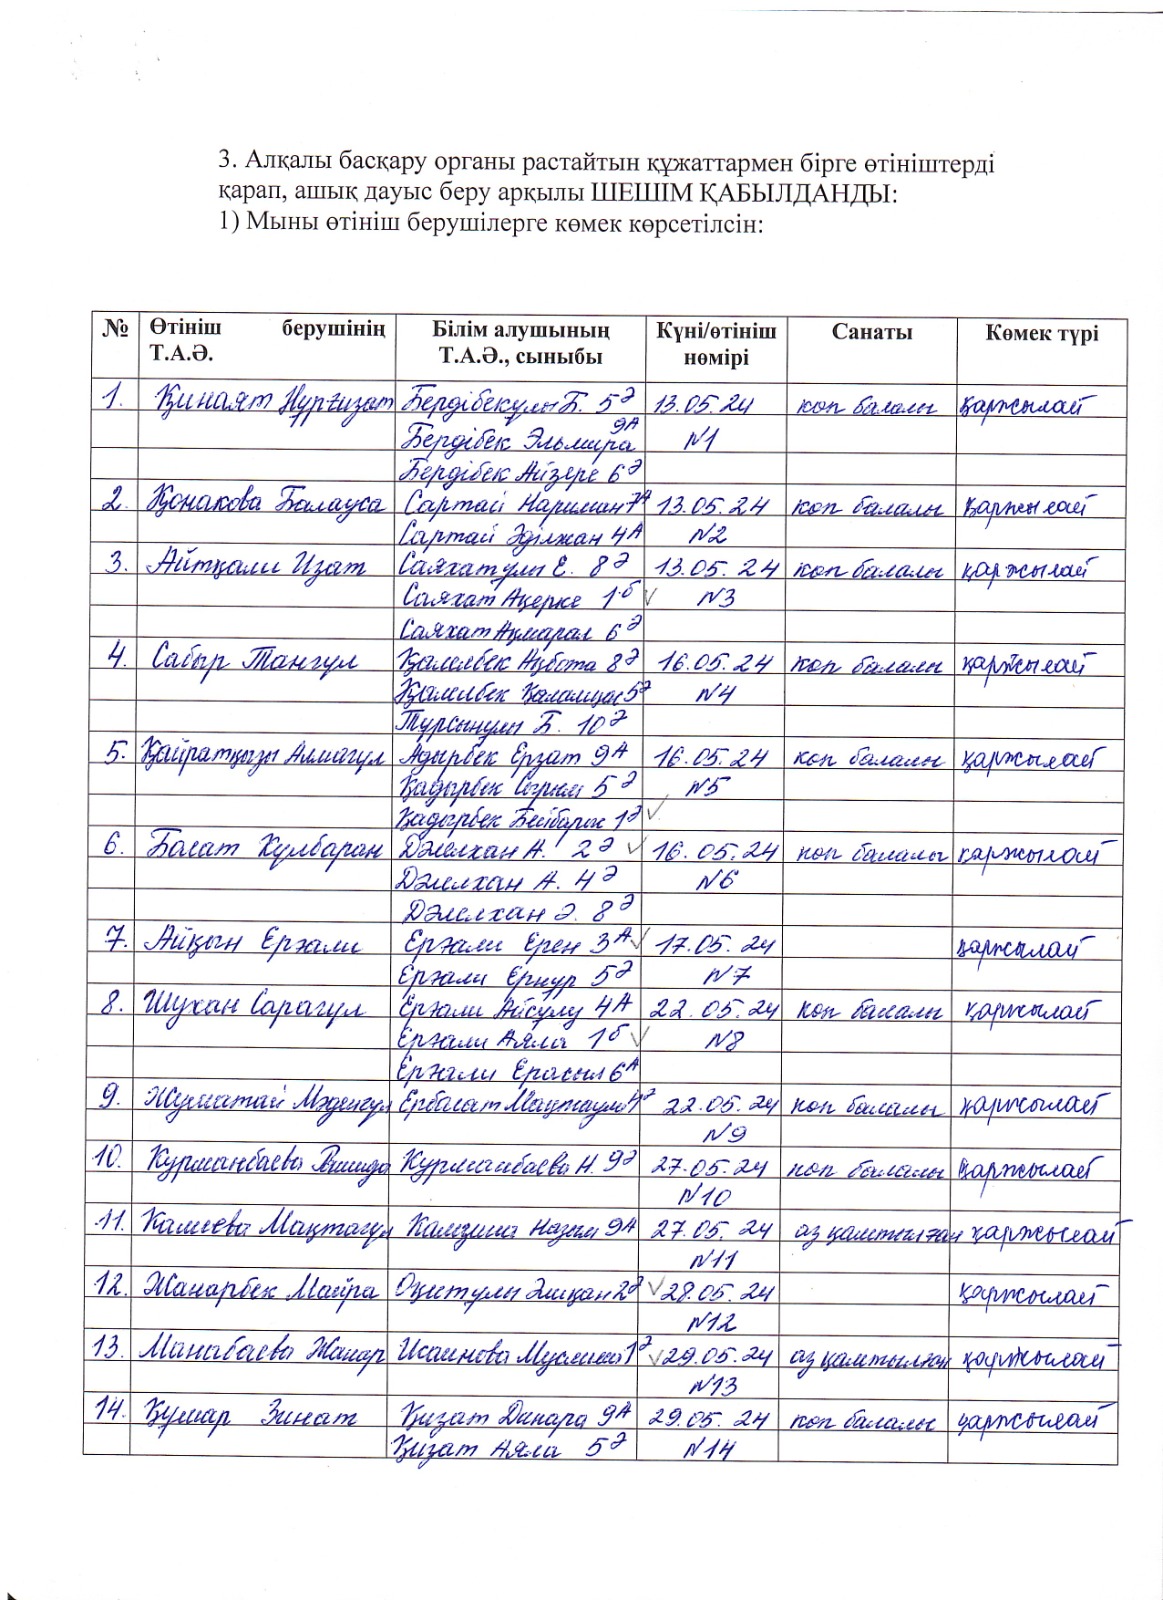 3. Алқалы басқару органы растайтын құжаттармен бірге өтініштерді
қарап, ашық дауыс беру арқылы ШЕШІМ ҚАБЫЛДАНДЫ:
1) Мыны өтініш берушілерге көмек көрсетілсін:
№ Өтініш берушінің Т.А.Ә. Білім алушының Т.А.Ә., сыныбы Күні/өтініш нөмірі Санаты Көмек түрі
1. Қинаят Нұрғизат Бердібекұлы Б. 5Ә 13.05.24 көп балалы қаржылай
Бердібек Эльмира 9А №1
Бердібек Айзере 6Ә
2. Қонакова Балауса Сартай Нариман 7А 13.05.24 көп балалы қаржылай
Сартай Әділжан 4А №2
3. Айтқали Изат Саяхатұлы Е. 8Ә 13.05.24 көп балалы қаржылай
Саяхат Ақерке 1б №3
Саяхат Ақмарал 6Ә
4. Сабыр Тангүл Ақбота 8Ә 16.05.24 көп балалы қаржылай
5Ә №4
Тұрсынұлы Б. 10Ә
5. Қайратқызы Алмагүл Ерзат 9А 16.05.24 көп балалы қаржылай
Қадырбек 5Ә №5
Қадырбек Бейбарыс 1Ә
6. Болат Күлбаран Дәлелхан А. 2Ә 16.05.24 көп балалы қаржылай
Дәлелхан А. 4Ә №6
Дәлелхан Ә. 8Ә
7. Айқын Ержали Ержали Ерен 3А 17.05.24 қаржылай
Ержали Ернұр 5Ә №7
8. Шухан Сарагүл Ержали Айсұлу 4А 22.05.24 көп балалы қаржылай
Ержали Аяла 1б №8
Ержали Ерасыл 6А
9. Жұматай Мәденгүл Ерболат 22.05.24 көп балалы қаржылай
№9
10. Курманбаева Курманбаева Н. 9Ә 27.05.24 көп балалы қаржылай
№10
11. Мақтагүл 9А 27.05.24 аз қамтылған қаржылай
№11
12. Жанарбек Майра Оқитұлы 2Ә 28.05.24 қаржылай
№12
13. Манабаева Жанар Исаинова 1Ә 29.05.24 аз қамтылған қаржылай
№13
14. Құмар Зинат Қизат Динара 9А 29.05.24 көп балалы қаржылай
Қизат Аяла 5Ә №14